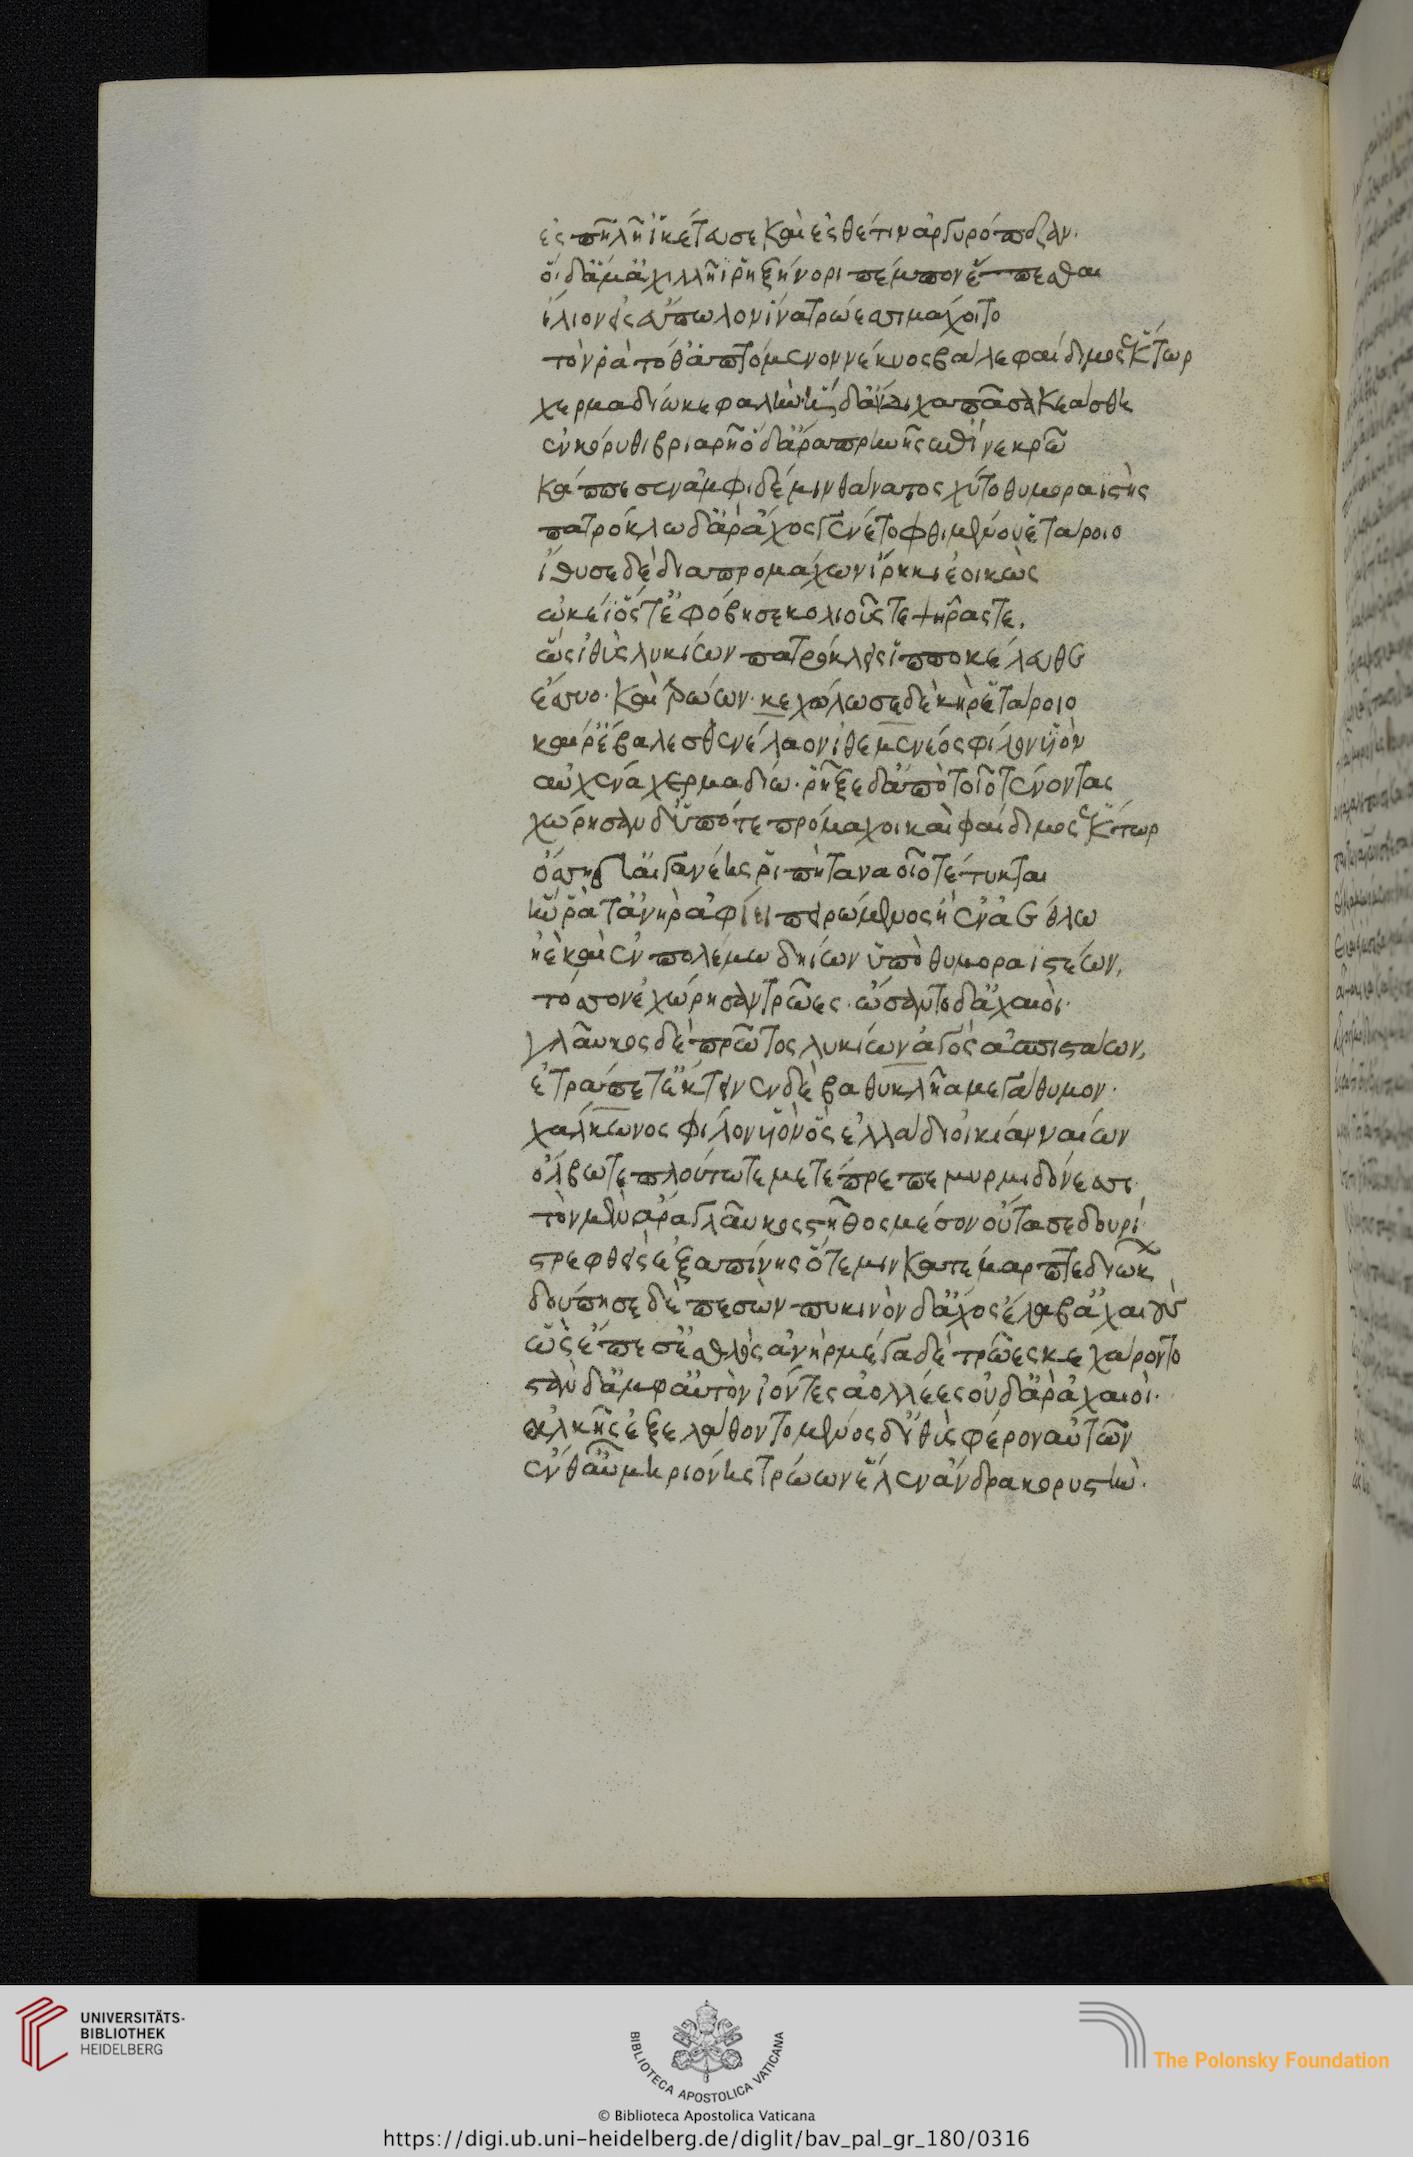 ἐς πηλῆ ἱκέτευσε καὶ ἐς θέτιν ἀργυρόπεζαν.
οἵ δ' ἅμ' ἀχιλλῆϊ ῥηξήνορι πέμπον ἕπεσθαι
ἴλιον εἰς εὔπωλον ἵνα τρώεσσι μαχοιτο
τὸν ῥὰ τόθ' ἁπτόμενον νέκυος βάλε φαίδιμος ἕκτωρ
χερμαδίω κεφαλὴν ἣ δ' ἄνδιχα πᾶσα κεάσθη
ἐν κόρυθι βριαρῆ ὃ δ' ἄρα πρηνὴς ἐπὶ νεκρῶ
κάππεσεν ἀμφὶ δέ μιν θάνατος χύτο θυμοραϊστὴς
πατρόκλω δ' ἄρ' ἄχος γένετο φθιμένου ἑτάροιο
ἴθυσε δὲ δια προμάχων ἴρηκι ἐοικὼς
ὠκέϊ ὅς τ' ἐφόβησε κολιούς τε ψῆρας τε.
ὣς ἰθὺς λυκίων πατρόκλεις ἱπποκέλευθε
ἔσσυο. καὶ τρώων. κεχόλωσε δὲ κὴρ ἑτάροιο
καί ρ' ἔβαλε σθενέλαον ἰθεμενέος φίλον υἱὸν
αὐχένα χερμαδίω. ῥῆξε δ' ἀπὸ τοῖο τένοντας
χώρησαν δ' ὑπό τε πρόμαχοι καὶ φαίδιμος ἕκτωρ
ὅσση δ' αἰγανέης ῥιπὴ ταναοῖο τέτυκται
ἥν ῥά τ' ἀνὴρ ἀφίει πειρώμενος ἢ ἐν ἀέθλω
ἠὲ καὶ ἐν πολέμω δηίων ὑπὸ θυμοραϊστέων,
τόσσον ἐχώρησαν τρῶες. ὤσαντο δ' ἀχαιοὶ.
γλαῦκος δὲ πρῶτος λυκίων ἀγὸς ἀσπιστάων,
ἐτράπετ' ἔκτεινεν δὲ βαθυκλῆα μεγάθυμον.
χάλκωνος φίλον υἱὸν ὃς ἑλλάδι οἰκία ναίων
ὄλβω τε πλούτω τε μετέπρεπε μυρμιδόνεσσι.
τὸν μὲν ἄρα γλαῦκος στῆθος μέσον οὔτασε δουρὶ
στρεφθεὶς ἐξαπίνης ὅτε μιν κατέμαρπτε διώκων
δούπησε δὲ πεσὼν πυκινὸν δ' ἄχος ἔλαβ' ἀχαιοὺς
ὣς ἔπεσ' ἐσθλὸς ἀνὴρ μέγα δὲ τρῶες κεχάροντο
στὰν δ' ἀμφ' αὐτὸν ἰόντες ἀολλέες οὐδ' ἄρ' ἀχαιοὶ.
ἀλκῆς ἐξελάθοντο μένος δ' ἰθὺς φέρον αὐτῶν
ἔνθ' αὖ μηριόνης τρώων ἕλεν ἄνδρα κορυστὴν.
UNIVERSITÄTS-
BIBLIOTHEK
HEIDELBERG
BIBLIOTECA APOSTOLICA VATICANA
The Polonsky Foundation
© Biblioteca Apostolica Vaticana
https://digi.ub.uni-heidelberg.de/diglit/bav_pal_gr_180/0316